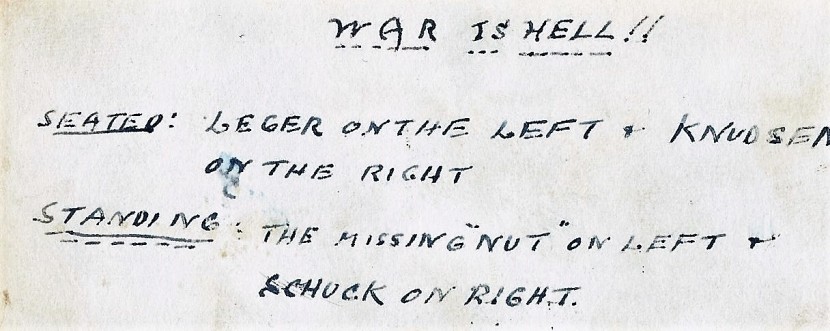 WAR IS HELL!!
SEATED: LEGER ON THE LEFT & KNUDSEN
ON THE RIGHT
STANDING: THE MISSING "NUT" ON LEFT &
SCHUCK ON RIGHT.